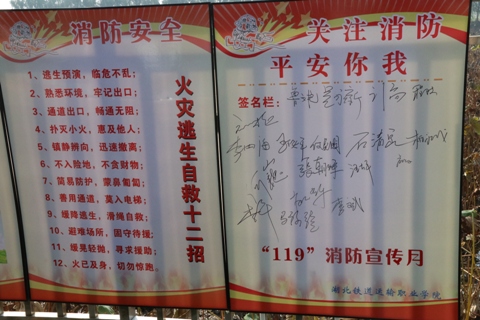 消防安全
1、逃生预演，临危不乱；
2、熟悉环境，牢记出口；
3、通道出口，畅通无阻；
4、扑灭小火，惠及他人；
5、镇静辨向，迅速撤离；
6、不入险地，不贪财物；
7、简易防护，蒙鼻匍匐；
8、善用通道，莫入电梯；
9、缓降逃生，滑绳自救；
10、避难场所，固守待援；
11、缓晃轻抛，寻求援助；
12、火已及身，切勿惊跑。
火灾逃生自救十二招
关注消防
平安你我
签名栏：
石清
张朝晖
“119”消防宣传月
湖北铁道运输职业学院